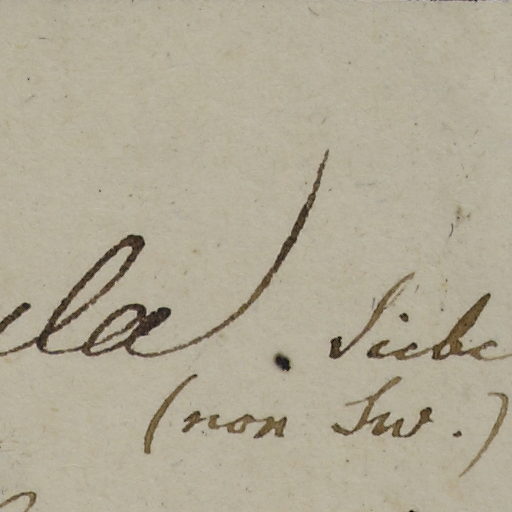 la . Siebe
(non Sw.)